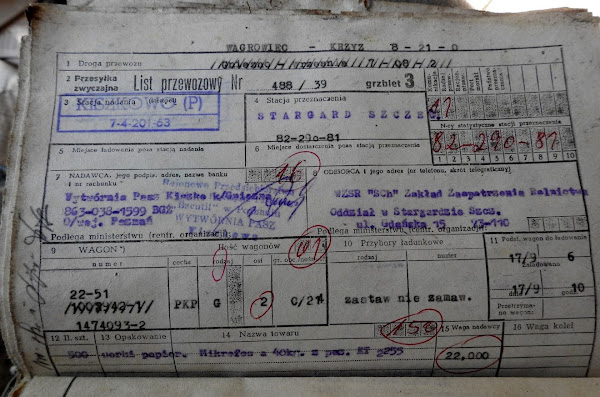 WAGROWIEC - KRZYZ 8-21-0
1 Droga przewozu
2 Przesyłka zwyczajna List przewozowy Nr 488/39 grzbiet 3
3 Stacja nadania (P)
7-4-201-63
4 Stacja przeznaczenia
STARGARD SZCZEC.
82-290-81
41
N-ry statystyczne stacji przeznaczenia
82-290-81
1 2 3 4 5 6 7 8 9 10
5 Miejsce ładowania poza stacją nadania
6 Miejsce dostarczenia poza stacją przeznaczenia
7 NADAWCA, jego podpis, adres, nazwa banku i nr rachunku
8 ODBIORCA i jego adres (nr telefonu, skrót telegraficzny)
Wytwórnia Pasz Kiszko k/Gniezna
863-038-1599 BGŻ
O/woj. Poznań
WYTWÓRNIA PASZ
WZSR "SCh" Zakład Zaopatrzenia Rolnictwa
Oddział w Stargardzie Szcz.
ul. Gdańska 15 73-110
Podlega ministerstwu (centr. organizacji)
Podlega ministerstwu (centr. organizacji)
9 WAGON *)
Ilość wagonów
10 Przybory ładunkowe
11 Podst. wagon do ładowania
numer cecha rodzaj osi gr. obc./masa
17/9 6
Załadowano
22-51
1474093-2
PKP G 2 C/21
zastaw nie zamaw.
17/9 10
Przetrzymano wagon:
12 Il. szt. 13 Opakowanie 14 Nazwa towaru 15 Waga nadawcy 16 Waga kolei
500 worki papier. Mikrofos a 40kg. z pac. KT 2255 22,000